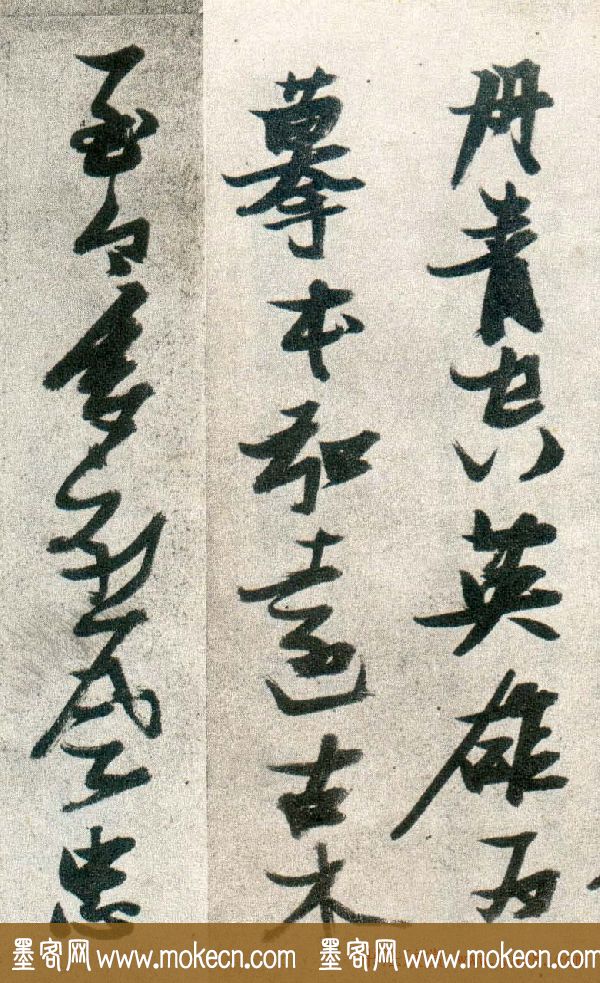 丹青真英雄
摹本 遠古木
至今多烈風忠
墨客网 www.mokecn.com 墨客网 www.mokecn.com